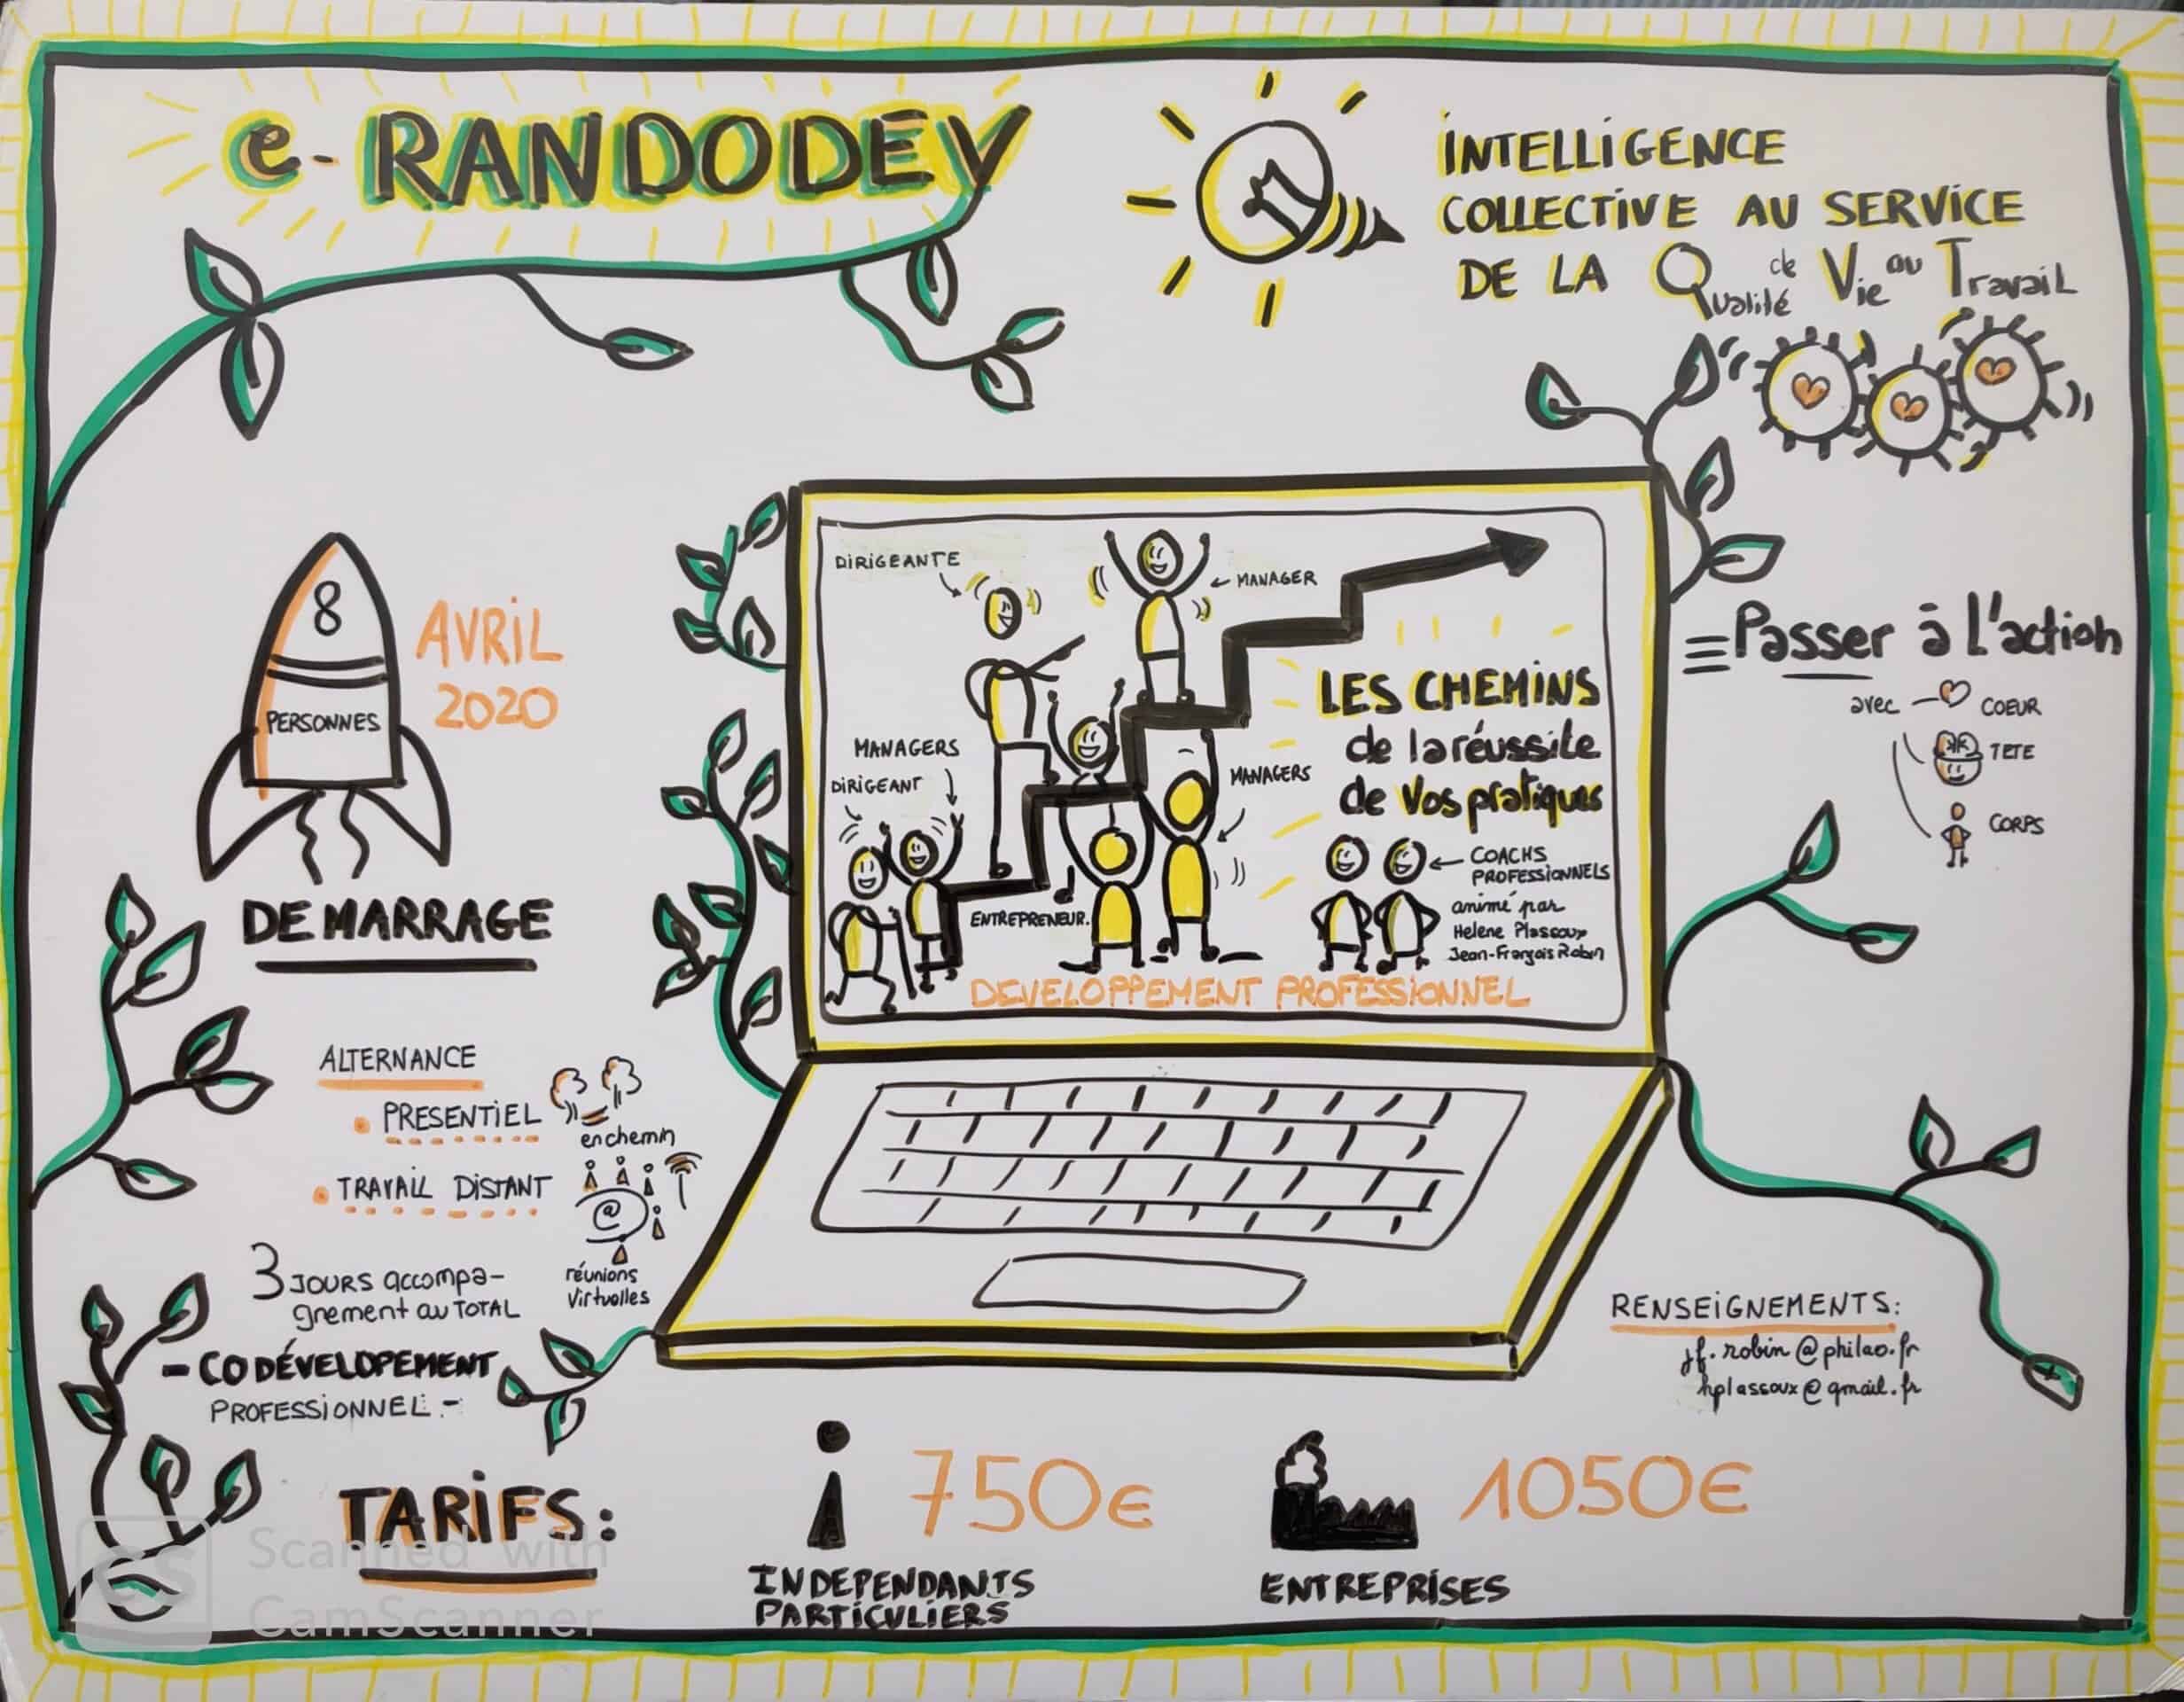 e-RANDODEV
INTELLIGENCE
COLLECTIVE AU SERVICE
DE LA Qualité de Vie au Travail
8
PERSONNES
AVRIL
2020
DEMARRAGE
DIRIGEANTE
MANAGER
MANAGERS
DIRIGEANT
MANAGERS
ENTREPRENEUR.
LES CHEMINS
de la réussite
de Vos pratiques
COACHS
PROFESSIONNELS
animé par
Helene Plassoux
Jean-François Robin
DEVELOPPEMENT PROFESSIONNEL
Passer à L'action
avec
COEUR
TETE
CORPS
ALTERNANCE
PRESENTIEL
en chemin
TRAVAIL DISTANT
@
réunions
Virtuelles
3 JOURS accompa-
gnement au TOTAL
- CO DÉVELOPEMENT
PROFESSIONNEL -
RENSEIGNEMENTS:
jf.robin@philao.fr
hplassoux@gmail.fr
TARIFS:
750€
INDEPENDANTS
PARTICULIERS
1050€
ENTREPRISES
CS
Scanned with
CamScanner